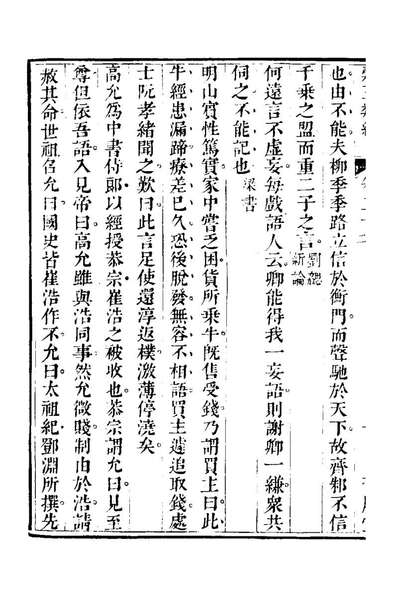 也由不能夫柳季季路立信於衡門而聲馳於天下故齊邾不信
千乘之盟而重二子之言劉勰新論
何遠言不虛妄每戲語人云卿能得我一妄語則謝卿一縑衆共
伺之不能記也梁書
明山賓性篤實家中嘗乏困貨所乘牛既售受錢乃謂買主曰此
牛經患漏蹄療差已久恐後脫發無容不相語買主遽追取錢處
士阮孝緒聞之歎曰此言足使還淳返樸激薄停澆矣
高允爲中書侍郞以經授恭宗崔浩之被收也恭宗謂允曰見至
尊但依吾語入見帝曰高允雖與浩同事然允微賤制由於浩請
赦其命世祖召允曰國史皆崔浩作不允曰太祖紀鄧淵所撰先